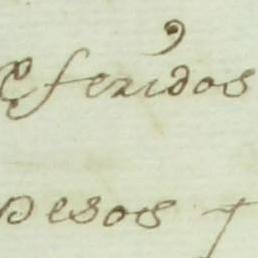 Referidos
pesos